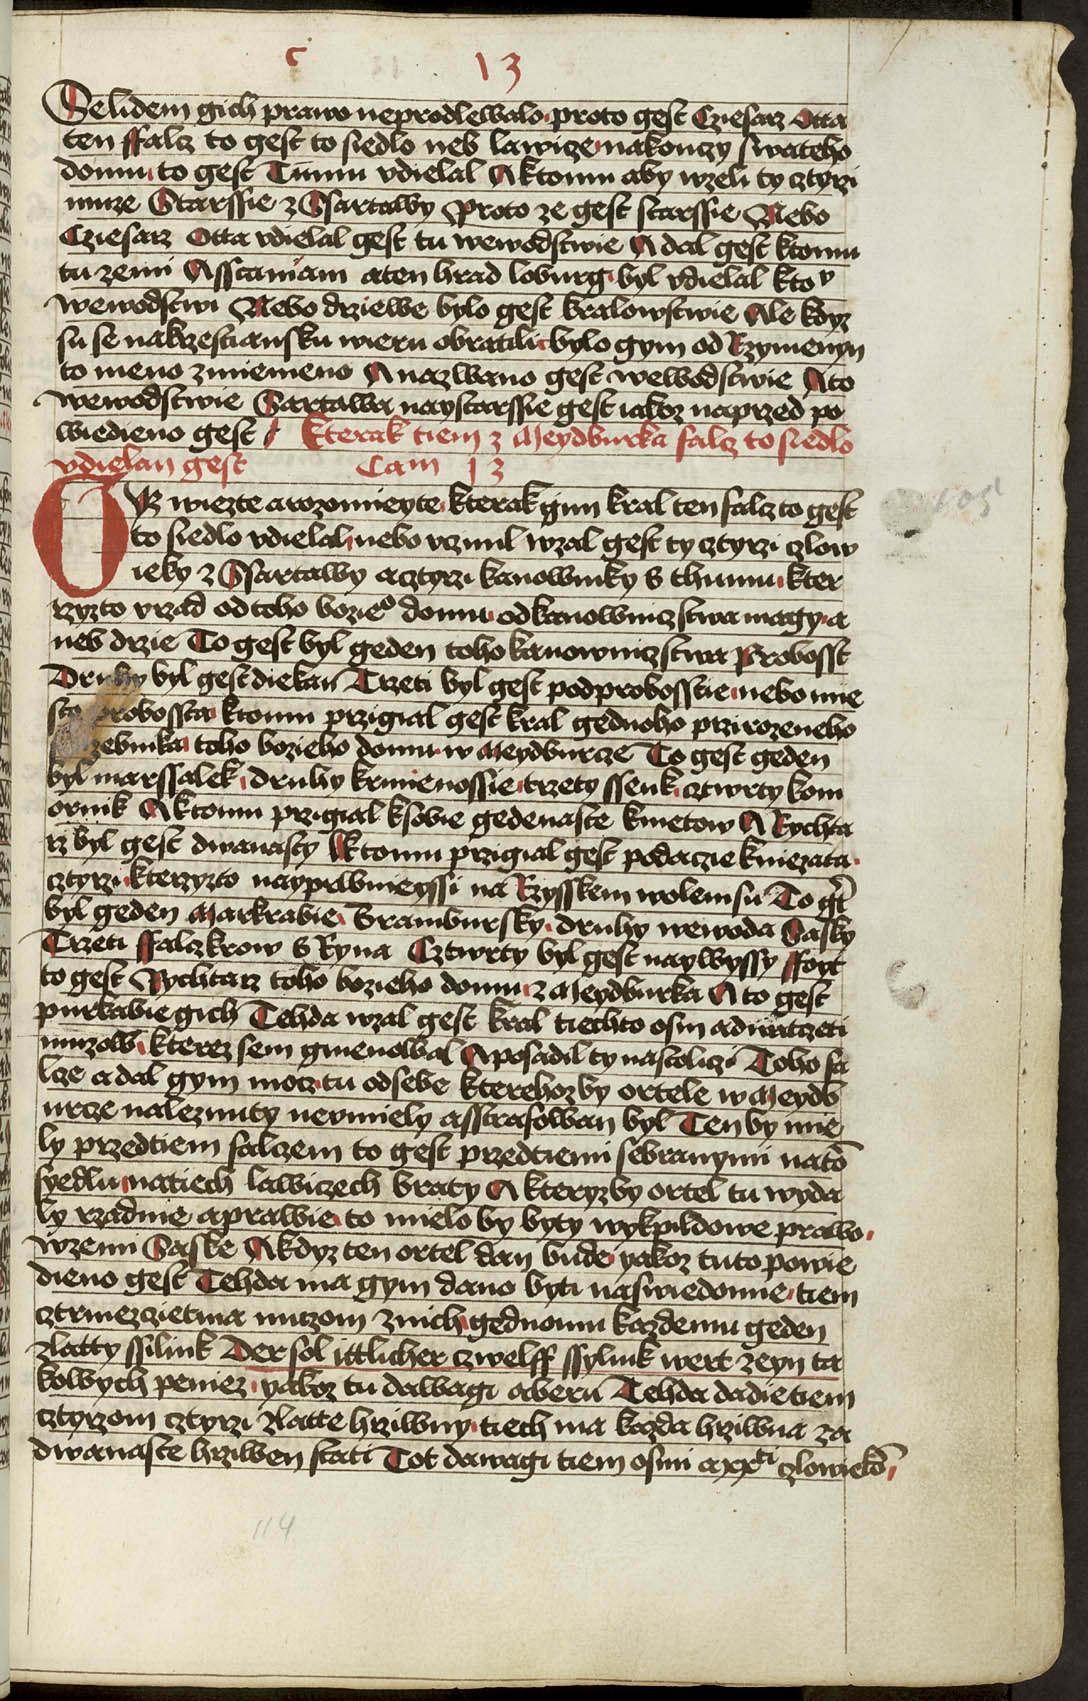 c 13
Se lidem gich prawo neprodlewalo proto gest Cziesarz Otta
ten ffalcz to gest to siedlo neb lawicze nakonczy swateho
domu to gest Tumu vdielal A ktomu aby wzeli ty cztyrzi
muze Starssie z Sartawy Proto ze gest starssie Nebo
Cziesarz Otta vdielal gest tu wewodstwie A dal gest ktomu
tu zemi Asscaniam aten hrad loburg byl vdielal kto
wewodstwi Nebo drziewe bylo gest kralowstwie Ale kdyz
su se nakrzestiansku wieru obratili bylo gym od Rzymenyn
to meno zmiemeno A nazwano gest wewodstwie A to
wewodstwie Sartawa naystarssie gest iakoz naprzed po
wiedieno gest Kterak tiem z Meydburka falcz to siedlo
vdielan gest Cam 13
OVz wiezte arozomieyte kterak gim kral ten falcz to gest
to siedlo vdielal nebo vczinil wzal gest ty cztyrzi czlow
ieky z Sartawy acztyrzi kanowniky s thumu kter
rzyzto vrzad odtoho bozieo domu odkanownicz stwa magy a
neb drzie To gest byl geden toho kanownicz stwa Probosst
Druhy byl gest diekan Trzeti byl gest podprobosstie nebo mie
sto probossta ktomu przigial gest kral gednoho przirozeneho
toho bozieho domu w Meydburcze To gest geden
byl marssalek druhy krmienossie trzety ssenk cztwrty kom
ornik A ktomu przigial ksobie gedenaste kmetow A Rychta
rz byl gest dwanasty A ktomu przigial gest podaczie kniezata
cztyrzi kterzyzto nayprawnieyssi na Rzysskem woleni su To gt
byl geden Markrabie Bramburský druhy wewoda Sasky
Trzeti ffalczkrow s Ryna Cztwrty byl gest naywyssy ffoyt
to gest Rychtarz toho bozieho domu z Meydburka A to gest
purkabie gich Tehda wzal gest kral tiechto osm adwatczeti
muzow kterez sem gmenowal A posadil ty nastoliczi Toho fa
lcze a dal gym mocz tu odsebe kterehoz by ortele w Meydb
urcze naleznuty neymiely asstrasowan byl Ten by mie
ly przedtiem falczem to gest przedtiemi sebranymi nato
syedlu natiech lawiczech braty A kteryzby ortel tu wyda
ly rzadnie aprawie to mielo by byty wykpildowe prawo
wzemi Saske A kdyz ten ortel dan bude yakoz tuto powie
dieno gest Tehda ma gym dano byti naswiedomie tiem
cztrmezczietma muzom znich gednomu kazdemu geden
zlatty ssilink Der sol ittlicher czwelff ssylink wert zeyn ta
kowych peniez yakoz tu dawagi aberu Tehda dadie tiem
cztyrzom cztyrzi zlatte hrziwny tiech ma kazda hrziwna za
dwanaste hrziwen stati Tot dawagi tiem osmi axxti czlowieko
114